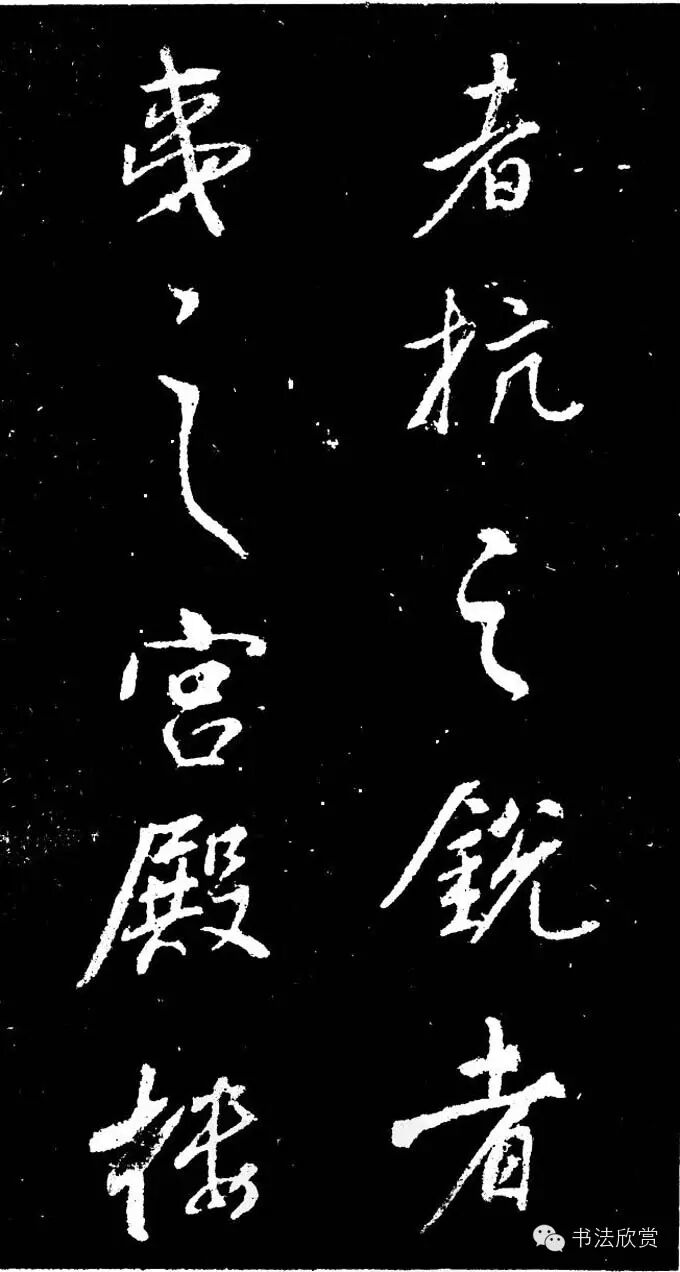 者抗之銳者
夷之宮殿樓
书法欣赏